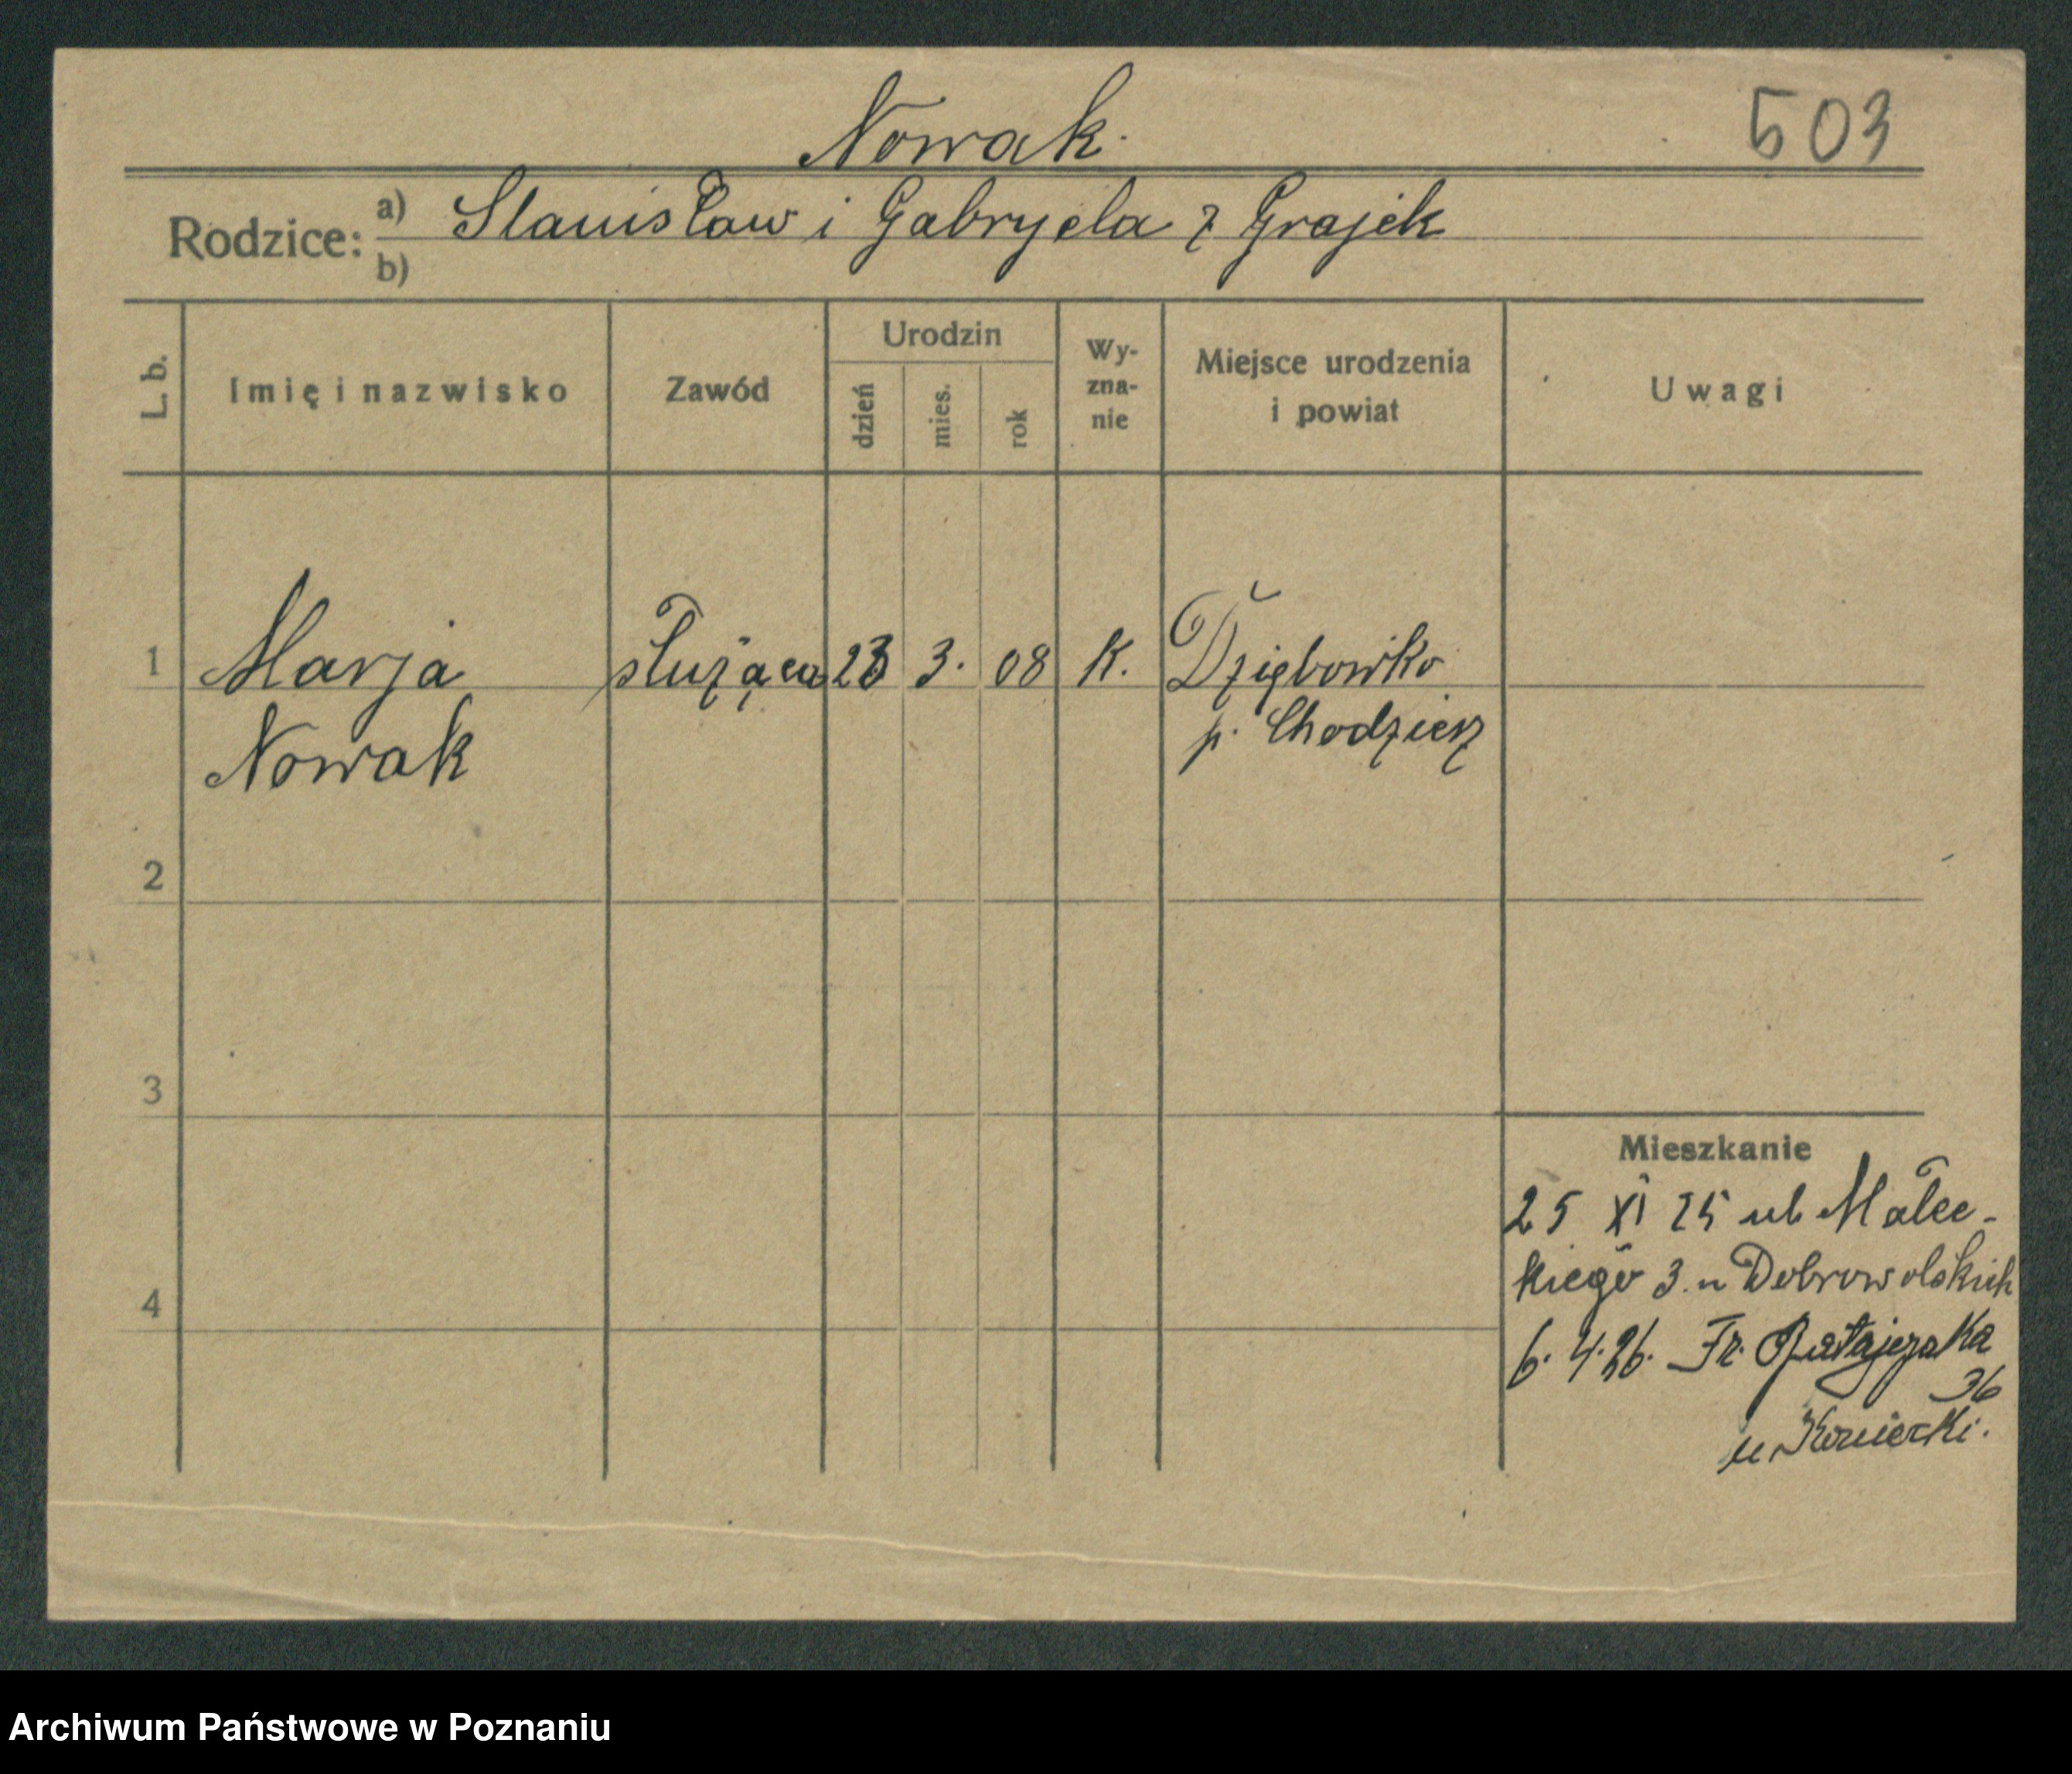 Nowak.
503
Rodzice: a) Stanisław i Gabryela z Grajek
b)
L. b.
Imię i nazwisko
Zawód
Urodzin
dzień
mies.
rok
Wy-
zna-
nie
Miejsce urodzenia
i powiat
Uwagi
1 Marja służąca 23 3. 08 K. Dziębowko
Nowak p. Chodzież
2
3
4
Mieszkanie
25 XI 25 ul. Małec-
kiego 3. u Dobrowolskich
6. 4. 26. Fr. Ratajczaka
36
u
Archiwum Państwowe w Poznaniu